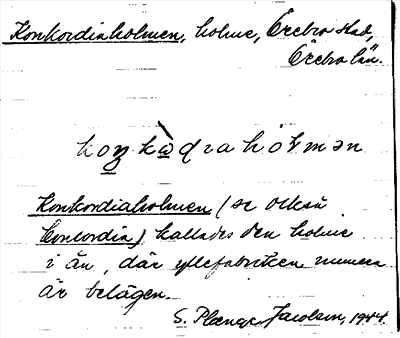 Konkordiaholmen, holme, Örebro stad,
Örebro län.
Konkordiaholmen (se också
Concordia) kallades den holme
i ån, där yllefabriken numera
är belägen.
S. Jacobson, 1944.